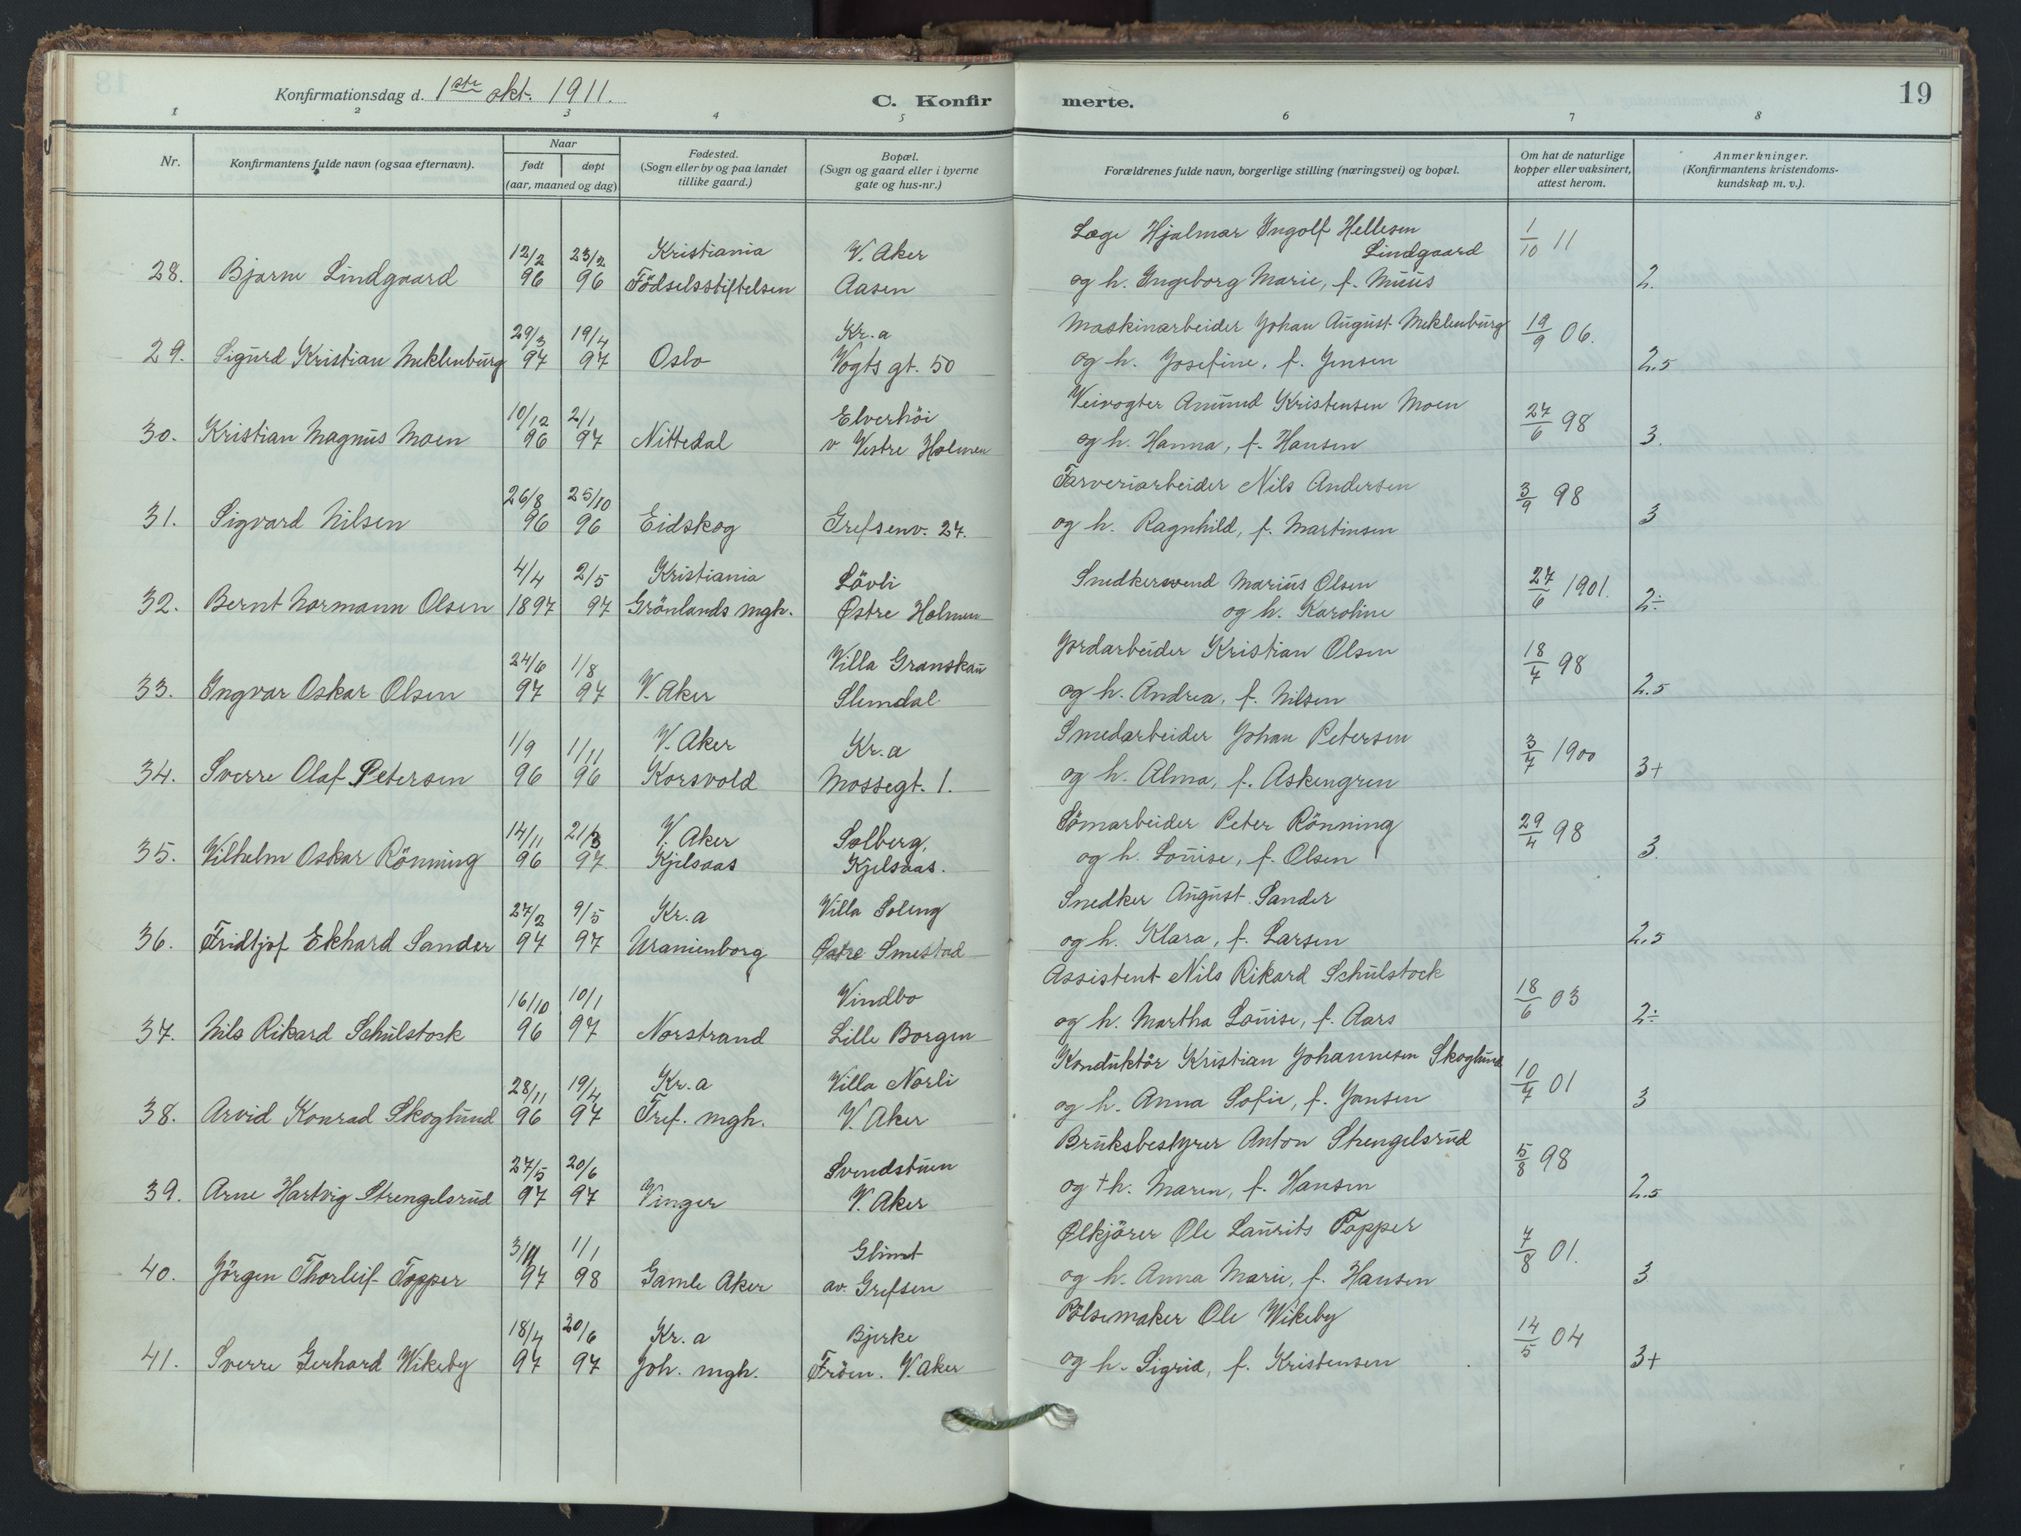 Konfirmationsdag d. 1ste okt. 1911.
C. Konfir merte.
19
1 2 3 4 5 6 7 8
Nr.
Konfirmantens fulde navn (ogsaa efternavn).
Naar
født
døpt
(aar, maaned og dag)
Fødested.
(Sogn eller by og paa landet
tillike gaard.)
Bopæl.
(Sogn og gaard eller i byerne
gate og hus-nr.)
Forældrenes fulde navn, borgerlige stilling (næringsvei) og bopæl.
Om hat de naturlige
kopper eller vaksinert,
attest herom.
Anmerkninger.
(Konfirmantens kristendoms-
kundskap m. v.).
12/2 23/2 Kristiania V. Aker Læge Hjalmar Ingolf Hellesen Lindgaard 1/10 11
28. Bjarne Lindgaard 96 96 Födselsstiftelsen Aasen og h. Ingeborg Marie, f. Muus 2.
29/3 19/4 Kr.a Maskinarbeider Johan August Meklenburg 19/9 06.
29. Sigurd Kristian Meklenburg 97 97 Oslo Vogts gt. 50 og h. Josefine, f. Jensen 2.5
10/12 2/1 Elverhöi Veivogter Amund Kristensen Moen 27/6 98
30. Kristian Magnus Moen 96 97 Nittedal v Vestre Holmen og h. Hanna, f. Hansen 3.
26/8 25/10 Farveriarbeider Nils Andersen 3/9 98
31. Sigvard Nilsen 96 96 Eidskog Grefsenv. 27. og h. Ragnhild, f. Martinsen 3
4/4 2/5 Kristiania Lövli Snedkersvend Marius Olsen 27/6 1901.
32. Bernt Normann Olsen 1897 97 Grönlands mgh. Østre Holmen og h. Karoline 2÷
24/6 1/8 Villa Granskau Jordarbeider Kristian Olsen 18/7 98
33. Ingvar Oskar Olsen 97 97 V. Aker Slemdal og h. Andrea, f. Nilsen 2.5
1/9 1/11 V. Aker Kr.a Smedarbeider Johan Petersen 3/7 1900
34. Sverre Olaf Petersen 96 96 Korsvold Mossegt. 1. og h. Alma, f. Askengren 3+
14/11 21/3 V. Aker Solberg, Sömarbeider Peter Rönning 29/4 98
35. Vilhelm Oskar Rönning 96 97 Kjelsaas Kjelsaas. og h. Louise, f. Olsen 3.
27/2 9/5 Kr.a Villa Soleng Snedker August Sander
36. Fridtjof Ekhard Sander 97 97 Uranienborg Østre Smestad og h. Klara, f. Larsen 2.5
16/10 10/1 Vindbo Assistent Nils Rikard Schulstock 18/6 03
37. Nils Rikard Schulstock 96 97 Norstrand Lille Borgen og h. Martha Louise, f. Aars 2÷
28/11 19/4 Kr.a Villa Norli Konduktör Kristian Johannesen Skoglund 10/7 01
38. Arvid Konrad Skoglund 96 97 Tref. mgh. V. Aker og h. Anna Sofie, f. Jansen 3
27/5 20/6 Svendstuen Bruksbestyrer Anton Strengelsrud 5/8 98
39. Arne Hartvig Strengelsrud 97 97 Vinger V. Aker og †h. Maren, f. Hansen 2.5
3/11 1/1 Glimt Ølkjörer Ole Laurits Topper 7/8 01.
40. Jörgen Thorleif Topper 97 98 Gamle Aker av. Grefsen og h. Anna Marie, f. Hansen 3
18/4 20/6 Kr.a Bjerke Pölsemaker Ole Wikeby 14/5 04
41. Sverre Gerhard Wikeby 97 97 Joh. mgh. Fröen. V. Aker og h. Sigrid, f. Kristensen 3+